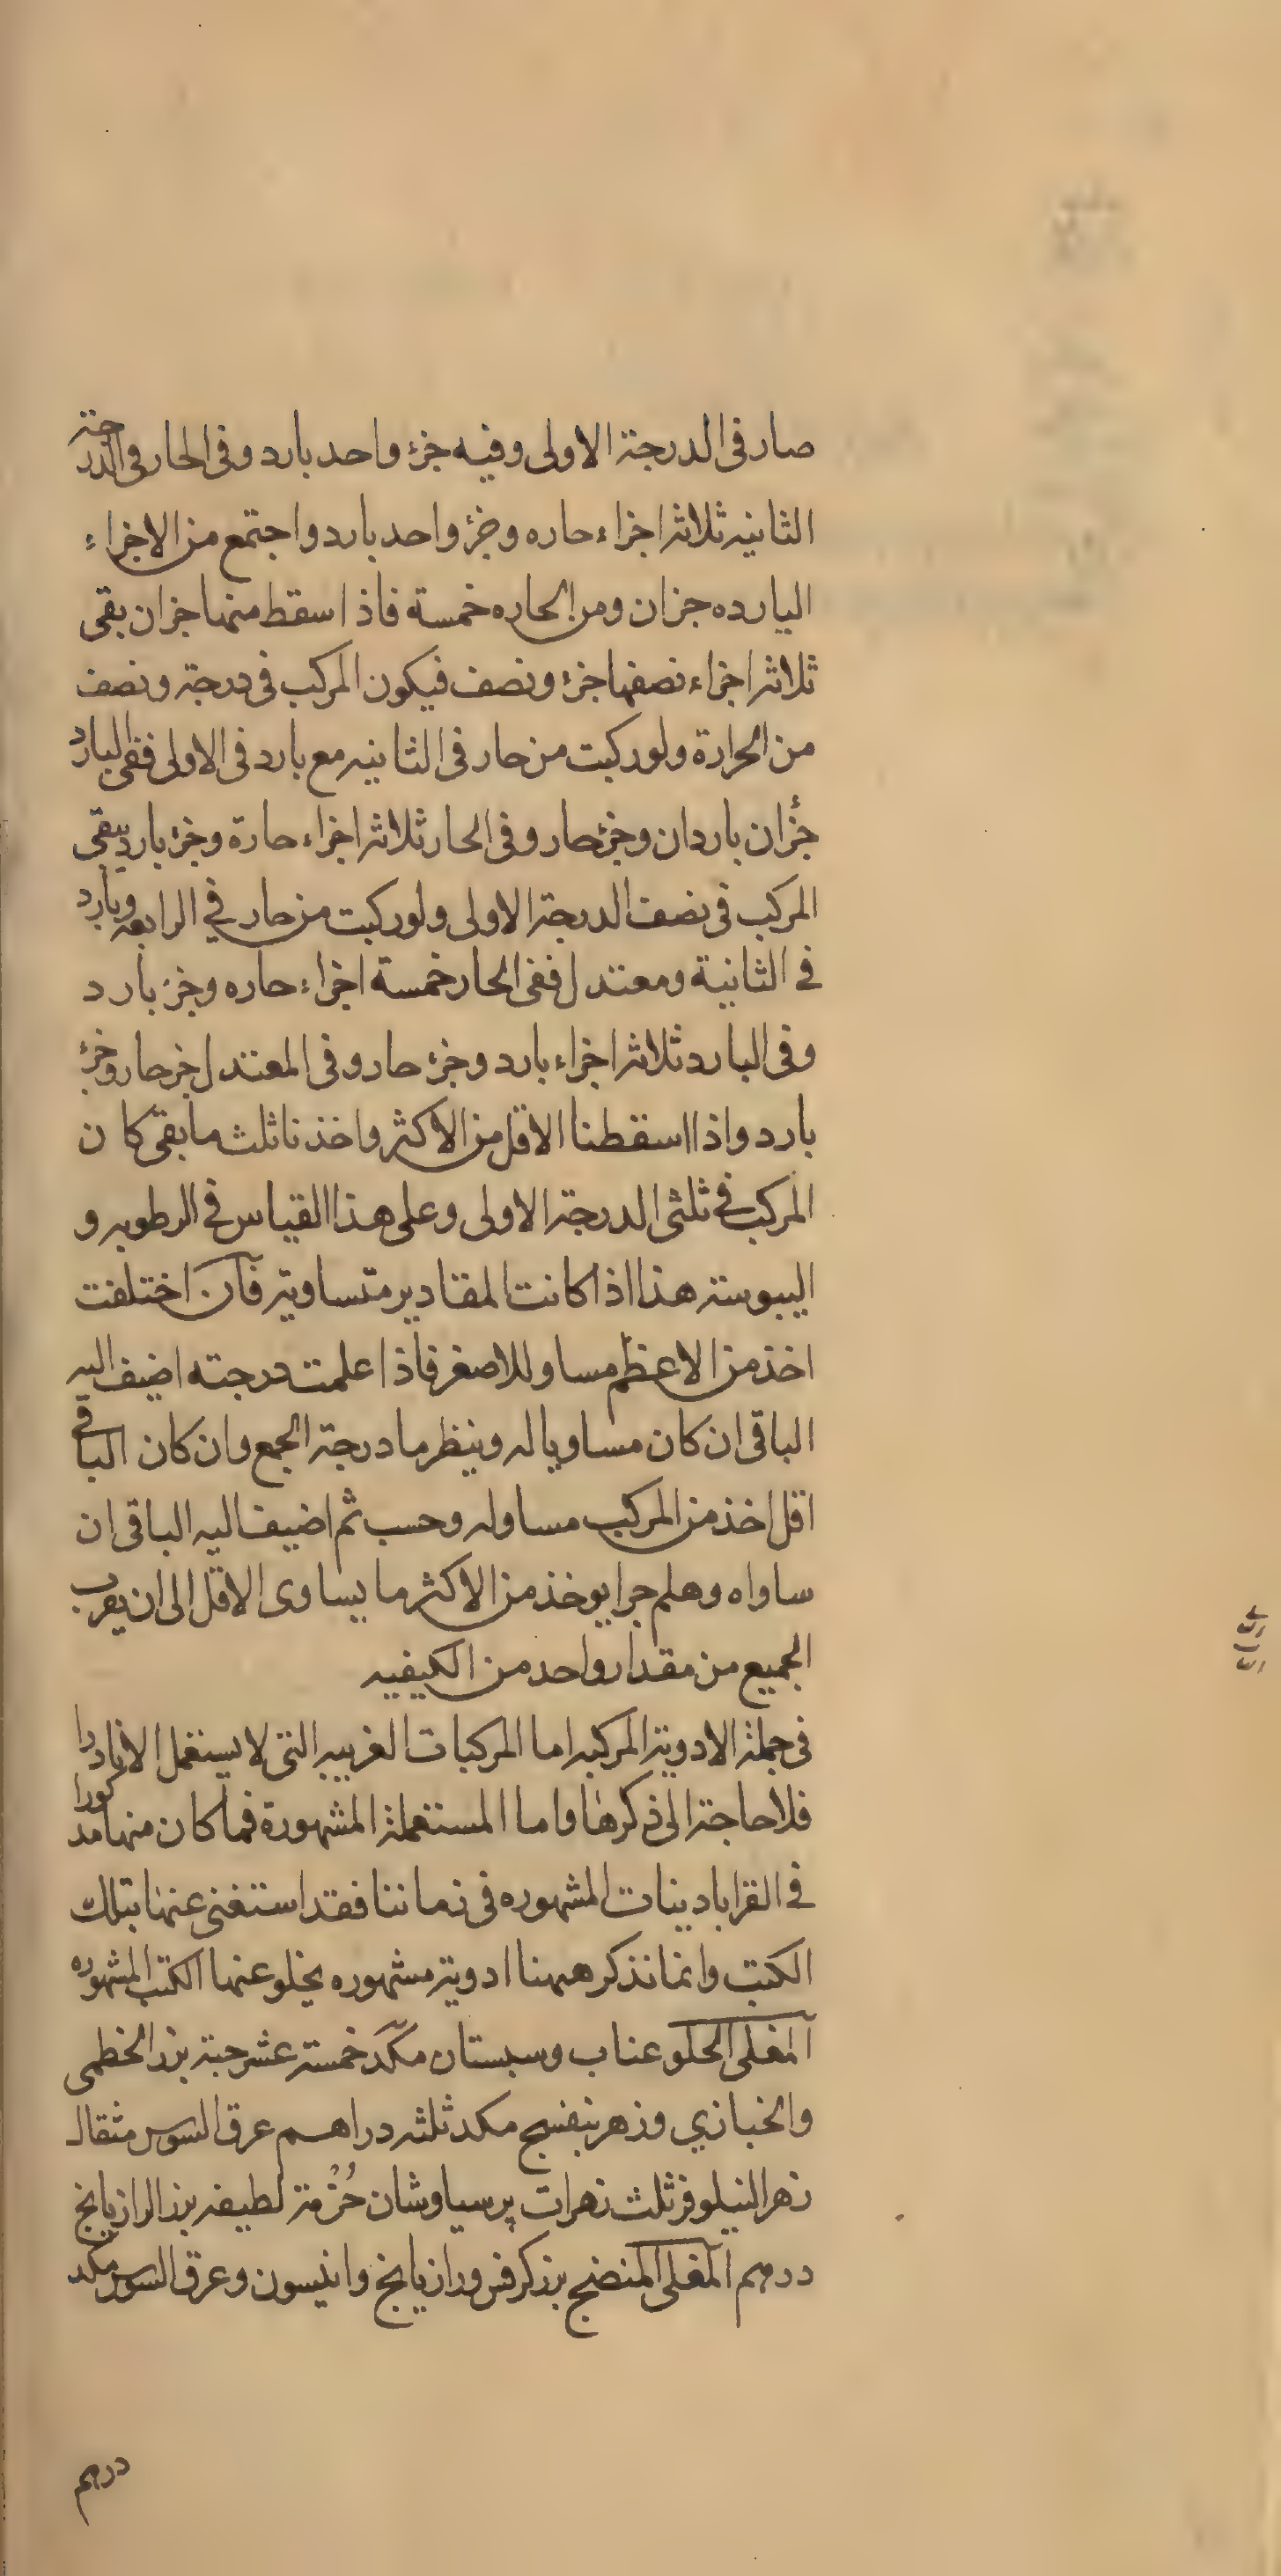 صار فى الدرجة الاولى وفيه جزء واحد بارد وفى الحار فى الدرجة
الثانيه ثلاثة اجزاء حاره وجزء واحد بارد واجتمع من الاجزاء
البارده جزان ومن الحاره خمسة فاذا سقط منها جزان بقى
ثلاثة اجزاء نصفها جزء ونصف فيكون المركب فى درجة ونصف
من الحرارة ولو ركبت من حار فى الثانيه مع بارد فى الاولى ففى البارد
جزأن باردان وجزء حار وفى الحار ثلاثة اجزاء حارة وجزء بارد يبقى
المركب فى نصف الدرجة الاولى ولو ركبت من حار في الرابعه وبارد
في الثانية ومعتدل ففى الحار خمسة اجزاء حاره وجزء بارد
وفى البارد ثلاثة اجزاء بارد وجزء حار وفى المعتدل جزء حار وجزء
بارد واذا اسقطنا الاقل من الاكثر واخذنا ثلث ما بقى كان
المركب في ثلثى الدرجة الاولى وعلى هذا القياس في الرطوبه و
اليبوسة هذا اذا كانت المقادير متساوية فان اختلفت
اخذ من الاعظم مساو للاصغر فاذا علمت درجته اضيف اليه
الباقى ان كان مساويا له وينظر ما درجة الجمع وان كان الباقي
اقل اخذ من المركب مساو له وحسب ثم اضيف اليه الباقى ان
ساواه وهلم جرا يوخذ من الاكثر ما يساوى الاقل الى ان يقرب
الجميع من مقدار واحد من الكيفيه
فى جملة الادوية المركبه اما المركبات الغريبه التى لا يستعمل الا نادرا
فلا حاجة الى ذكرها واما المستعملة المشهورة فما كان منها مذكورا
في القرابادينات المشهوره فى زماننا فقد استغنى عنها بتلك
الكتب وانما نذكر ههنا ادوية مشهوره يخلو عنها الكتب المشهوره
المغلى الحلو عناب وسبستان مكد خمسة عشر حبة بزر الخطمى
والخبازي وزهر بنفسج مكد ثلثه دراهم عرق السوس مثقال
زهر النيلوفر ثلث زهرات پرسياوشان حُزْمة لطيفه بزر الرازيانج
درهم المغلى المنضج بزر كرفس ورازيانج وانيسون وعرق السوس مكد
درهم